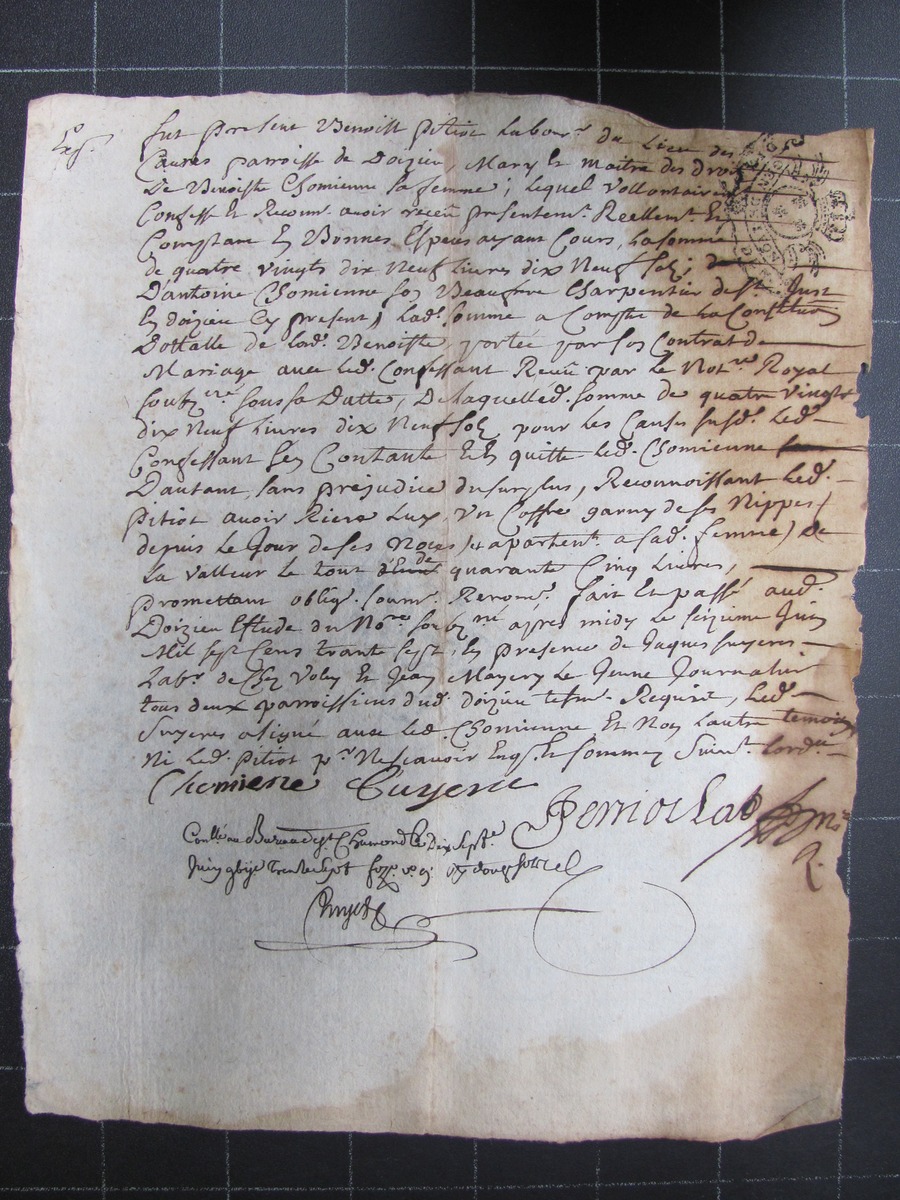 Exp.
fut present Benoist Pitiot Labour. du Lieu des
Caures parroisse de Doizieu, Mary et maitre des droits
de Benoiste Chomienne sa femme; lequel vollontair.
Confesse et Reconn. avoir receu presentemt. Reellemt. Et
Comptant En Bonnes Especes ayant Cours, La somme
de quatre vingts dix Neuf livres dix Neuf sols;
D'antoine Chomienne son Beaufrere Charpentier de St. Just
En doizieu Cy present, Lad. somme a Compte de La Constitution
Dottalle de Lad. Benoiste, portée par son Contrat de
Mariage avec led. Confessant Receu par le Notre. Royal
soubzné. sous sa Datte, De laquelle d. somme de quatre vingts
dix Neuf livres dix Neuf sols pour les Causes susd. Led.
Confessant sen Contante Et En quitte led. Chomienne
Dautant, sans prejudice du surplus, Reconnoissant led.
Pitiot avoir Riere Luy, Un Coffre garny de ses Nippes (
depuis le Jour de ses Noces) et apartent. a sad. femme) de
La valleur le tout de quarante Cinq livres,
promettant oblig. soum. Renonc. fait Et passé aud.
Doizieu Estude du Nore. soubzné apres midy le seizieme Juin
Mil sept Cens trante sept, En presence de Jaques Suyeres
Labr. de Chez Voley Et Jean Mayery le Jeune Journalier
tous deux parroissiens dud. doizieu tesm. Requis, led.
Suyeres a signé avec led. Chomienne Et Non lautre temoin
Ni led. Pitiot pr. Ne scavoir Enqs. Et sommez Suivt. lordce.
Chomiene Suyere
Conllé au Bureau de St. Chamond le Dix Sept.
Juin gbije Trente Sept douze sols